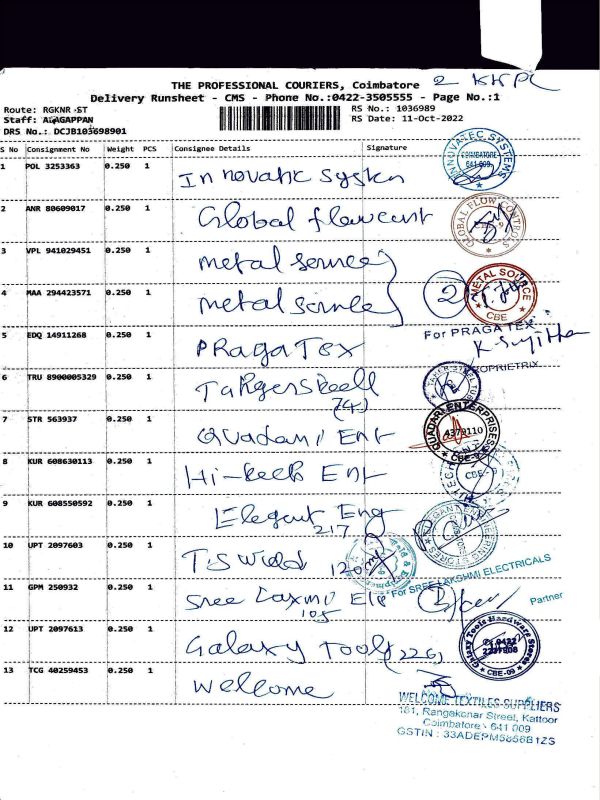 2 KHPL
THE PROFESSIONAL COURIERS, Coimbatore
Delivery Runsheet - CMS - Phone No.:0422-3505555 - Page No.:1
Route: RGKNR ST
RS No.: 1036989
Staff: ALAGAPPAN
RS Date: 11-Oct-2022
DRS No.: DCJB103698901
S No Consignment No Weight PCS Consignee Details Signature
1 POL 3253363 0.250 1 Innovatic System
INNOVATEC SYSTEMS COIMBATORE 641 009
2 ANR 80609017 0.250 1 Global flowcunt
GLOBAL FLOW CONTROLS CBE - 9
3 VPL 941029451 0.250 1 metal sernce
4 MAA 294423571 0.250 1 metal sernce 2
METAL SOURCE CBE
5 EDQ 14911268 0.250 1 PRaga Tex
For PRAGA TEX
K-Sujitha
PROPRIETRIX
6 TRU 8900005329 0.250 1 TaRgersteell
(74)
7 STR 563937 0.250 1 Quadani Ent
QUADARI ENTERPRISES 4379110 CBE-9
8 KUR 608630113 0.250 1 Hi-teeb Ent
CBE-9
9 KUR 608550592 0.250 1 Elegant Eng
217
10 UPT 2097603 0.250 1 TS Weld 120
11 GPM 250932 0.250 1 Sree Laxmi Ele
105
For SREE LAKSHMI ELECTRICALS
Partner
12 UPT 2097613 0.250 1 Galaxy Tools (226)
Galaxy Tools Hardware Stores 0422 2237808 CBE-09
13 TCG 40259453 0.250 1 Welcome
WELCOME TEXTILES SUPPLIERS
181, Rangakonar Street, Kattoor
Coimbatore - 641 009
GSTIN : 33ADEPM5856B1ZS